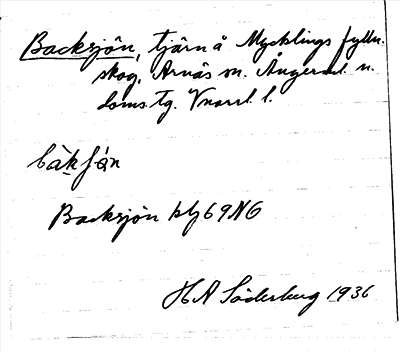 Backsjön, tjärn å Mycklings fylln.
skog, Arnäs sn. Ångerml. n.
doms. tg. Vnorrl. l.
bàkʃön
Backsjön kbl 69NO
H A Söderberg 1936